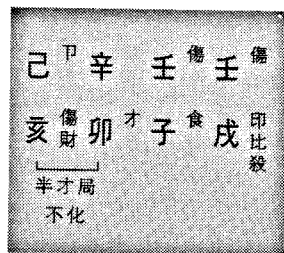 己 卩 辛 壬 傷 壬 傷
亥 傷財 卯 才 子 食 戌 印比殺
半才局
不化